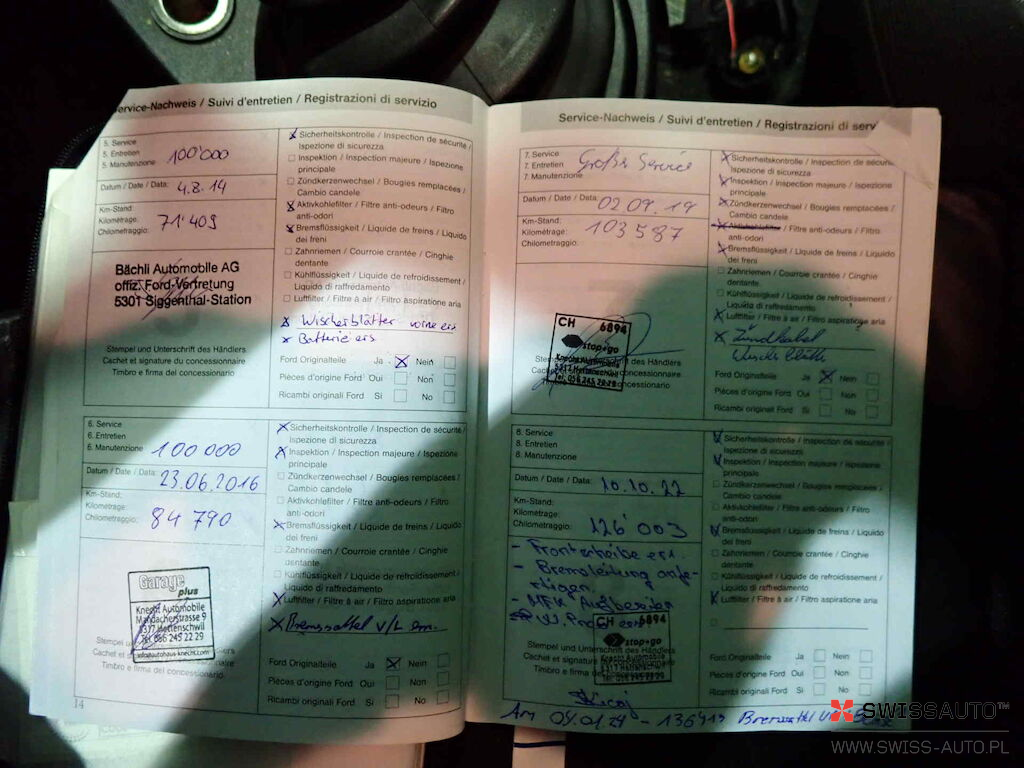 Service-Nachweis / Suivi d'entretien / Registrazioni di servizio
5. Service
5. Entretien
5. Manutenzione
100'000
Datum / Date / Data:
4.8.14
Km-Stand
Kilométrage:
Chilometraggio:
71'409
Bächli Automobile AG
offiz. Ford-Vertretung
5301 Siggenthal-Station
Stempel und Unterschrift des Händlers
Cachet et signature du concessionnaire
Timbro e firma del concessionario
Sicherheitskontrolle / Inspection de sécurité /
Ispezione di sicurezza
Inspektion / Inspection majeure / Ispezione
principale
Zündkerzenwechsel / Bougies remplacées /
Cambio candele
Aktivkohlefilter / Filtre anti-odeurs / Filtro
anti-odori
Bremsflüssigkeit / Liquide de freins / Liquido
dei freni
Zahnriemen / Courroie crantée / Cinghie
dentante
Kühlflüssigkeit / Liquide de refroidissement /
Liquido di raffredamento
Luftfilter / Filtre à air / Filtro aspiratione aria
Wischerblätter vorne ers.
Batterie ers.
Ford Originalteile Ja Nein
Pièces d'origine Ford Oui Non
Ricambi originali Ford Si No
6. Service
6. Entretien
6. Manutenzione
100 000
Datum / Date / Data:
23.06.2016
Km-Stand:
Kilométrage:
Chilometraggio:
84 790
Garage
plus
Knecht Automobile
Mandacherstrasse 9
5317 Hettenschwil
Tel. 056 245 22 29
info@autohaus-knecht.com
Stempel
Cachet et
Timbro e firma del concessionario
Sicherheitskontrolle / Inspection de sécurité /
Ispezione di sicurezza
Inspektion / Inspection majeure / Ispezione
principale
Zündkerzenwechsel / Bougies remplacées /
Cambio candele
Aktivkohlefilter / Filtre anti-odeurs / Filtro
anti-odori
Bremsflüssigkeit / Liquide de freins / Liquido
dei freni
Zahnriemen / Courroie crantée / Cinghie
dentante
Kühlflüssigkeit / Liquide de refroidissement /
Liquido di raffredamento
Luftfilter / Filtre à air / Filtro aspiratione aria
Bremssattel V/L ern.
Ford Originalteile Ja Nein
Pièces d'origine Ford Oui Non
Ricambi originali Ford Si No
14
Service-Nachweis / Suivi d'entretien / Registrazioni di servi
7. Service
7. Entretien
7. Manutenzione
Großer Service
Datum / Date / Data:
02.09.19
Km-Stand:
Kilométrage:
Chilometraggio:
103587
CH 6894
stop+go
Knecht Automobile
5317 Hettenschwil
Tel. 056 245 22 29
Sicherheitskontrolle / Inspection de sécurité
Ispezione di sicurezza
Inspektion / Inspection majeure / Ispezione
principale
Zündkerzenwechsel / Bougies remplacées /
Cambio candele
Aktivkohlefilter / Filtre anti-odeurs / Filtro
anti-odori
Bremsflüssigkeit / Liquide de freins / Liquido
dei freni
Zahnriemen / Courroie crantée / Cinghie
dentante
Kühlflüssigkeit / Liquide de refroidissement /
Liquido di raffredamento
Luftfilter / Filtre à air / Filtro aspiratione aria
Zündkabel
Ford Originalteile Ja Nein
Pièces d'origine Ford Oui Non
Ricambi originali Ford Si No
8. Service
8. Entretien
8. Manutenzione
Datum / Date / Data:
10.10.22
Km-Stand:
Kilométrage:
Chilometraggio:
126'003
- Frontscheibe ers.
- Bremsleitung anfe-
rtigen
- MFK Aufbereiten
CH 6894
stop+go
Knecht Automobile
5317 Hettenschwil
Tel. 056 245 22 29
Stempel und Unterschrift des Händlers
Cachet et signature du concessionnaire
Timbro e firma del concessionario
Sicherheitskontrolle / Inspection de sécurité /
Ispezione di sicurezza
Inspektion / Inspection majeure / Ispezione
principale
Zündkerzenwechsel / Bougies remplacées /
Cambio candele
Aktivkohlefilter / Filtre anti-odeurs / Filtro
anti-odori
Bremsflüssigkeit / Liquide de freins / Liquido
dei freni
Zahnriemen / Courroie crantée / Cinghie
dentante
Kühlflüssigkeit / Liquide de refroidissement /
Liquido di raffredamento
Luftfilter / Filtre à air / Filtro aspiratione aria
Ford Originalteile Ja Nein
Pièces d'origine Ford Oui Non
Ricambi originali Ford Si No
Am 04.01.24 - 136413
SWISSAUTO™
WWW.SWISS-AUTO.PL